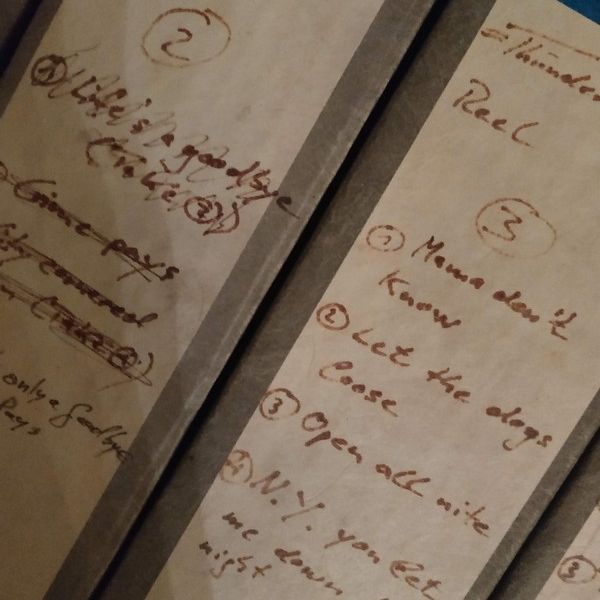 2
① Life's a goodbye
(Take ②)
Crime pays
covered
(Take ②)
only a goodbye
Pays
Thunder
Reel
3
① Mama don't
Know
② Let the dogs
loose
③ Open all nite
④ N.Y. you let
me down
night
③